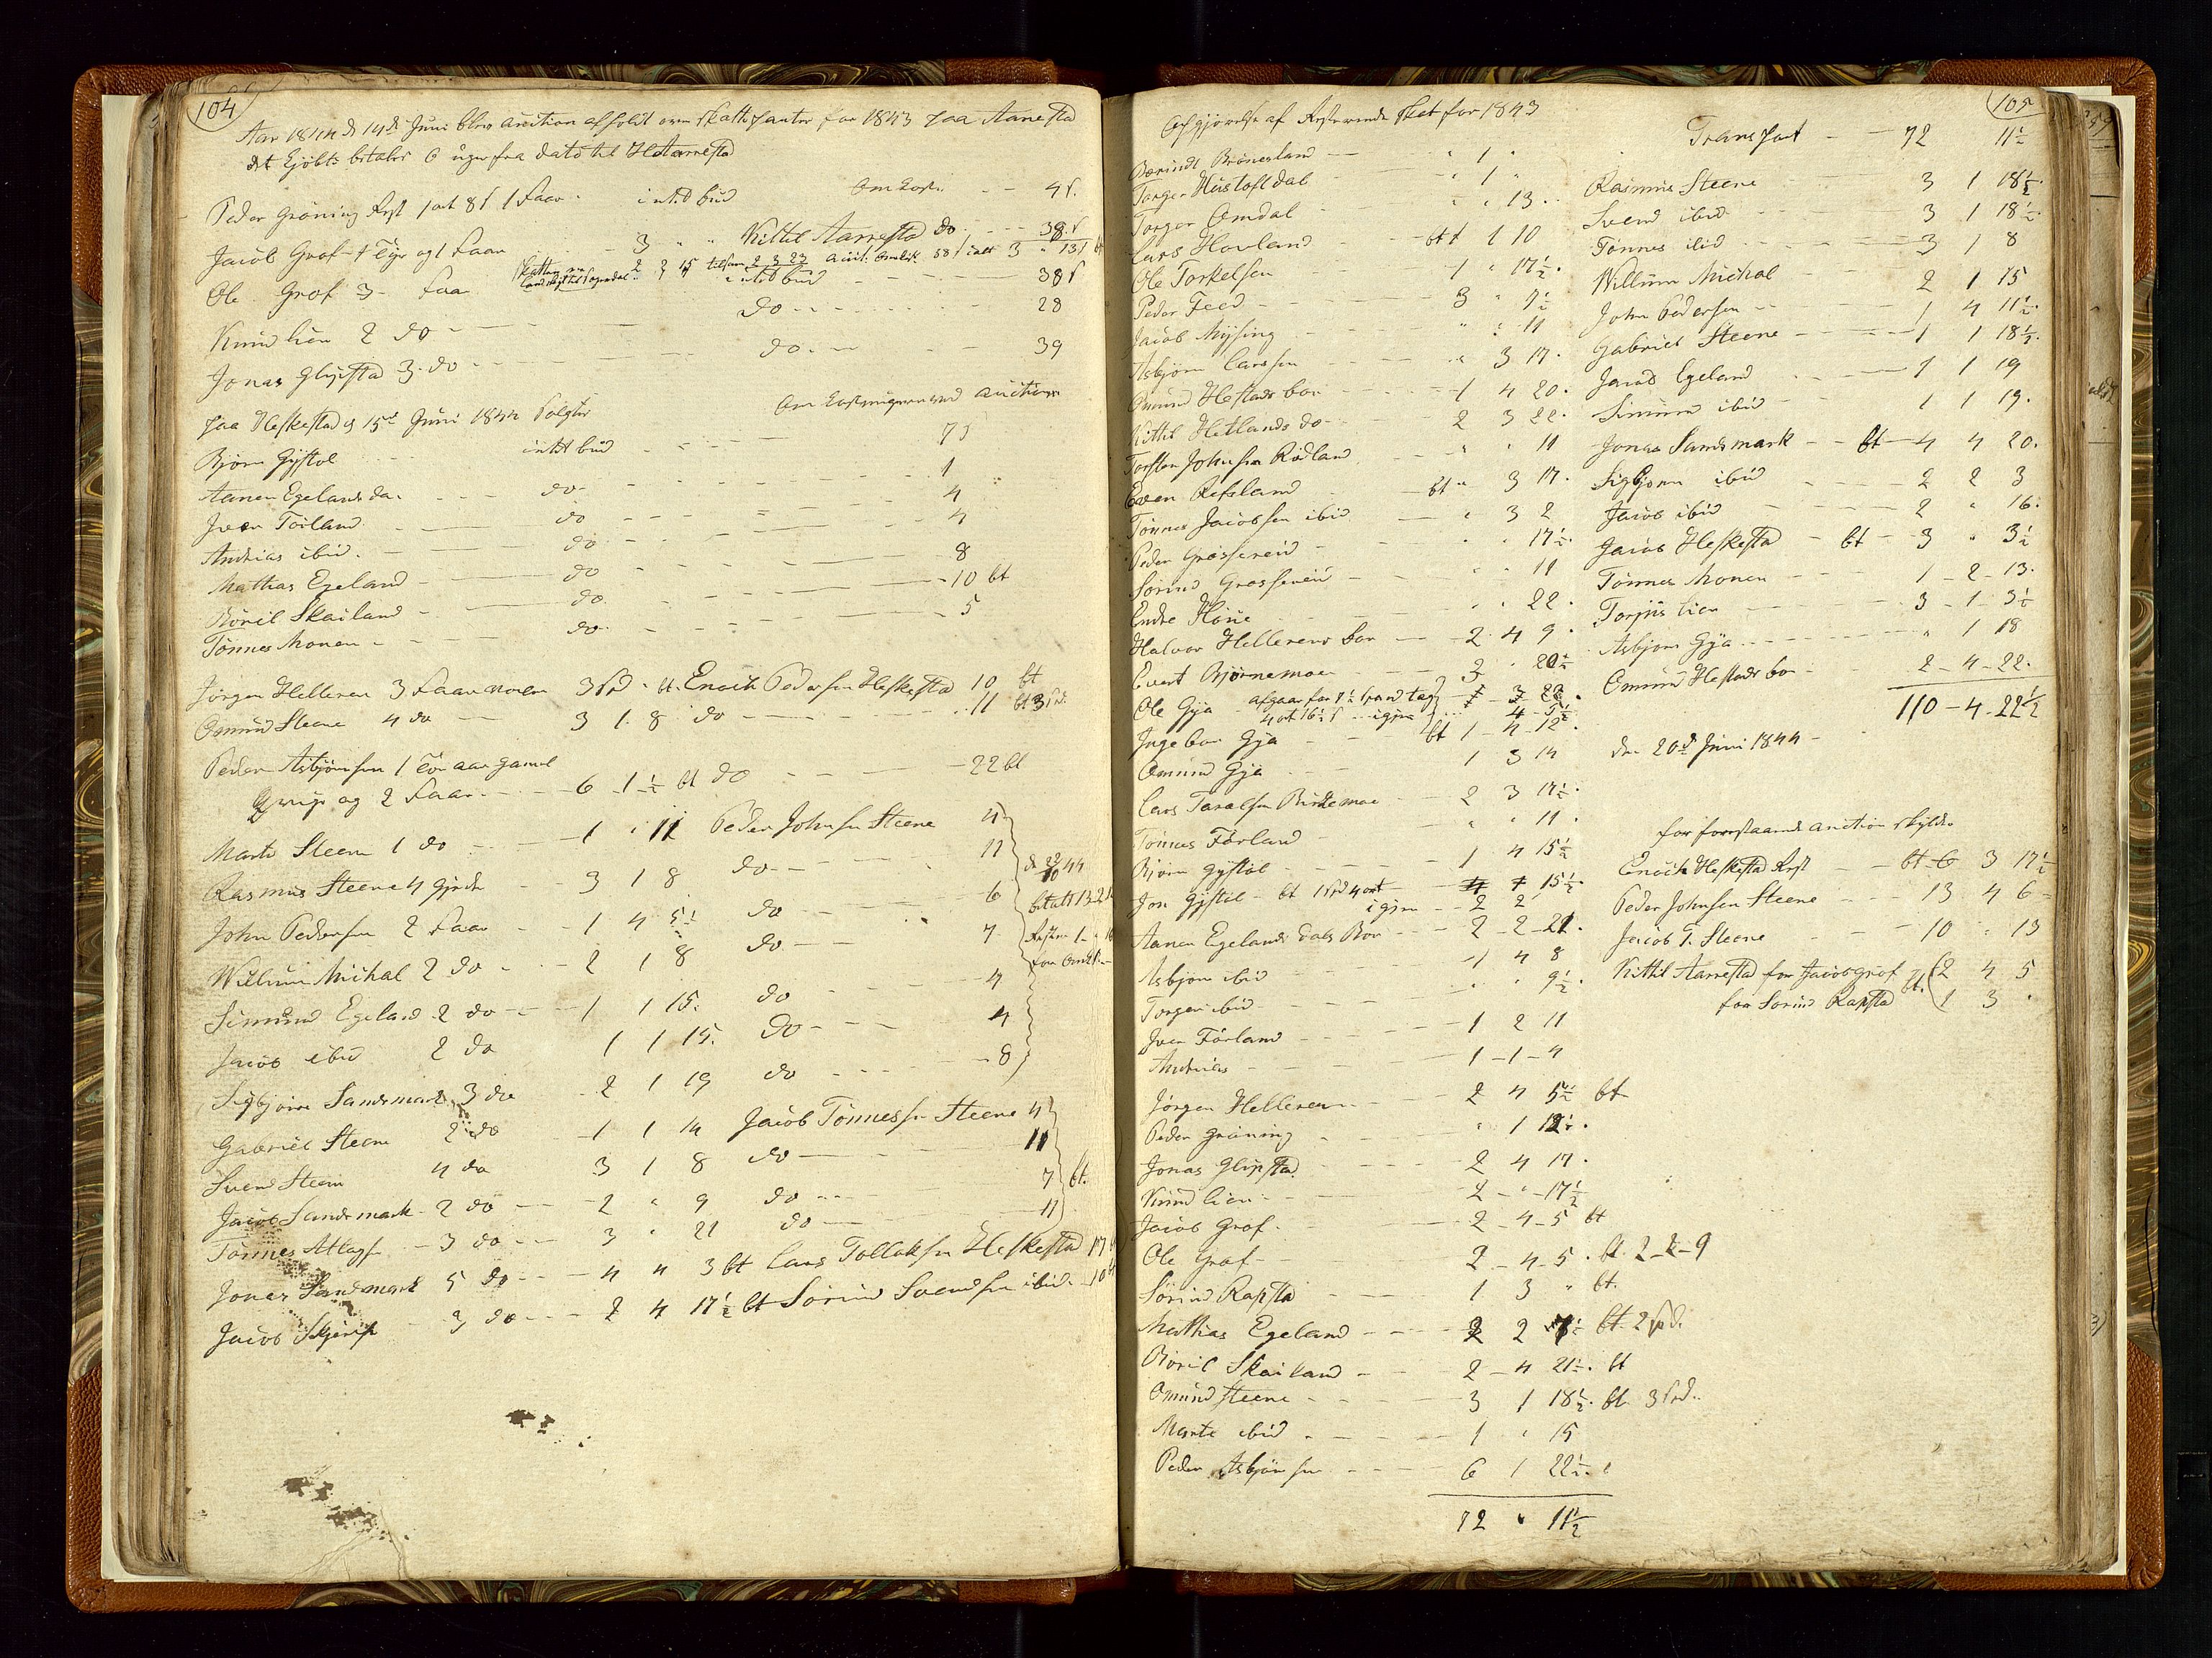 104
Aar 1844 d 14de Juni blev auction afholdt over skatte panter for 1843 paa Aarrestad
det Kjøbte betales 6 uger fra dato til H Aarrestad
Peder Grøning Rest 1 ort 8 s 1 Faar intet bud Omkost. 4 s.
Jacob Grof 1 og 1 Faar 3 " " Kittil Aarrestad do 38 s
2 3 15 tilsam 2 3 23 auct. Omkost. 38 s ialt 3 " 13 s
Ole Grof 3 Faar intet bud 38 s
Knud Lien 2 do do 28
Jonas Glipstad 3 do do 39
paa Heskestad d 15de Juni 1844 Omkostningerne ved auctionen
Bjørn Gystøl intet bud 7 s
Aanen Egelandsda. do 1
Iver Førland do 4
Andreas ibid. do 4
Mathias Egeland do 8
Børil Skailand do 10 bt
Tønnes Monen do 5
Jørgen Helleren 3 Faar 3 Spd " bt. Enoch Pedersen Heskestad 10 bt
Omund Steene 4 do 3 1 8 do 11 bt 3 Spd.
Peder Asbjørnsen 1 aar gamel
qvige og 2 Faar 6 1 ½ bt do 22 bt
Marte Steene 1 do 1 " 11 Peder Johnsen Steene 4
Rasmus Steene 4 3 1 8 do 11
John Pedersen 2 Faar 1 4 5½ do 6
Willum Michal 2 do 2 1 8 do 7
Simund Egeland 2 do 1 1 15. do 4
Jacob ibid 2 do 1 1 15. do 4
Sigbjørn Sandsmark 3 do 2 1 19 do 8
Gabriel Steene 2 do 1 1 14 Jacob Tønnessen Steene 4
Svend Steene 4 do 3 1 8 do 11
Jacob Sandsmark 2 do 2 " 9 do 7 bt.
Tønnes Atlags. 3 do 3 " 21 do 11
Jonas Sandsmark 5 do 4 4 3 bt Lars Tollaksen Heskestad 17
Jacob 3 do 2 4 17½ bt Sørind Svendsen ibid. 10
105
Opgjørelse af Resterende skat for 1843
Berindt Brønesland " 1 "
Torger Hustoftdal " 1 "
Torger Omdal " " 13
Lars Hovland bt 1 1 10
Ole Torkelsen 1 " 17½
Peder Feed 3 " 9½
Jacob Mysing " " 11
Asbjørn Larsen " 3 17
Omund Hestads bo 1 4 20
Kittil Hetlands do 2 3 22
Torsten Johnsen Rødland " " 11
Even Refsland bt " 3 17
Tønnes Jacobsen ibid " 3 2
Peder Grøssereid " " 17½
Sørind Grøssereid " " 11
Endre Høne " " 22
Halvor Hellerens bo 2 4 9
Evert Bjørnemoen 3 " 20½
Ole Gya afgaar for
4 ort 16½ s igjen 4 5½
Ingebor Gya bt 1 4 12
Omund Gya 1 3 14
Lars Taralsen Birkemoe 2 3 17½
Tønnes Førland " " 11
Bjørn Gystøl 1 4 15½
Jon Gystøl bt 1 Spd 4 ort 4 1 15½
igjen 2 2
Aanen Egelands dals Bo 2 2 21
Asbjørn ibid 1 4 8
Torger ibid " " 9½
Iver Førland 1 2 11
Andreas 1 1 4
Jørgen Helleren 2 4 5½ bt
Peder Grøning " 1 12½
Jonas Glipstad 2 4 17
Knud Lien 2 " 17½
Jacob Grof 2 4 5 bt
Ole Grof 2 4 5 bt. 2 2 9
Sørind Rapstad 1 3 " bt.
Mathias Egeland 2 2 7½ bt 2 spd.
Børil Skailand 2 4 21½ bt
Omund Steene 3 1 18½ bt. 3 Spd.
Marte ibid 1 " 15
Peder Asbjørnsen 6 1 22½
72 " 11½
Transport 72 11½
Rasmus Steene 3 1 18½
Svend ibid 3 1 18½
Tønnes ibid 3 1 8
Willum Michal 2 1 15
John Pedersen 1 4 11½
Gabriel Steene 1 1 18½
Jacob Egeland 1 1 19
Simund ibid 1 1 19
Jonas Sandsmark bt 4 4 20
Sigbjørn ibid 2 2 3
Jacob ibid 2 " 16
Jacob Heskestad bt 3 " 3½
Tønnes Monen 1 2 13
Torjus Lien 3 1 3½
Asbjørn Gya " 1 18
Omund Hestads bo 2 4 22
110 - 4 - 22½
den 20de Juni 1844
for forestaaende auction skylder
Enoch Heskestad Rest bt 6 3 17½
Peder Johnsen Steene 13 4 6
Jacob T. Steene 10 " 13
Kittil Aarrestad for Jacob Grof bt. 2 4 5
for Sørind Rapstad 1 3 "